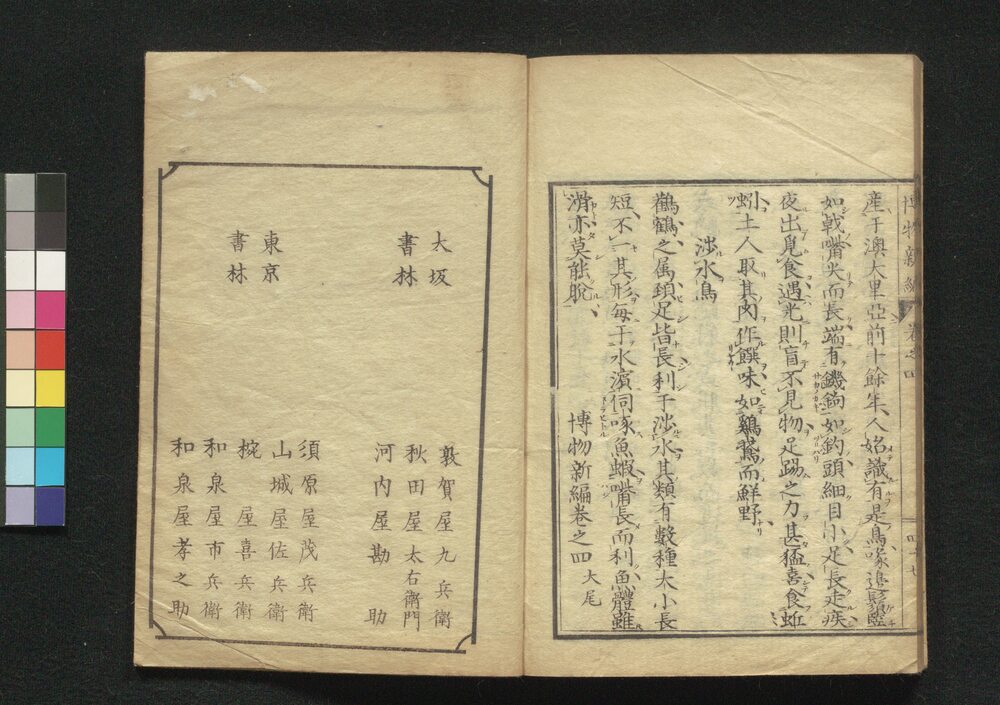 博物新編 卷之四 四十七
產于澳大里亞前十餘年人始識有是鳥喙邊鬚
如戟嘴尖而長端有鐖鉤如釣頭細目小足長走疾
夜出覓食遇光則盲不見物足踢之力甚猛喜食蚯
蚓土人取其肉作饌味如鷄鵞而鮮野
涉水鳥
鸛鶴之属頚足皆長利于涉水其類有數種大小長
短不一其形每于水濱伺啄魚蝦嘴長而利魚體雖
滑亦莫能脫
博物新編卷之四 大尾
大坂
書林
敦賀屋九兵衛
秋田屋太右衛門
河内屋勘助
東京
書林
須原屋茂兵衛
山城屋佐兵衛
椀屋喜兵衛
和泉屋市兵衛
和泉屋孝之助